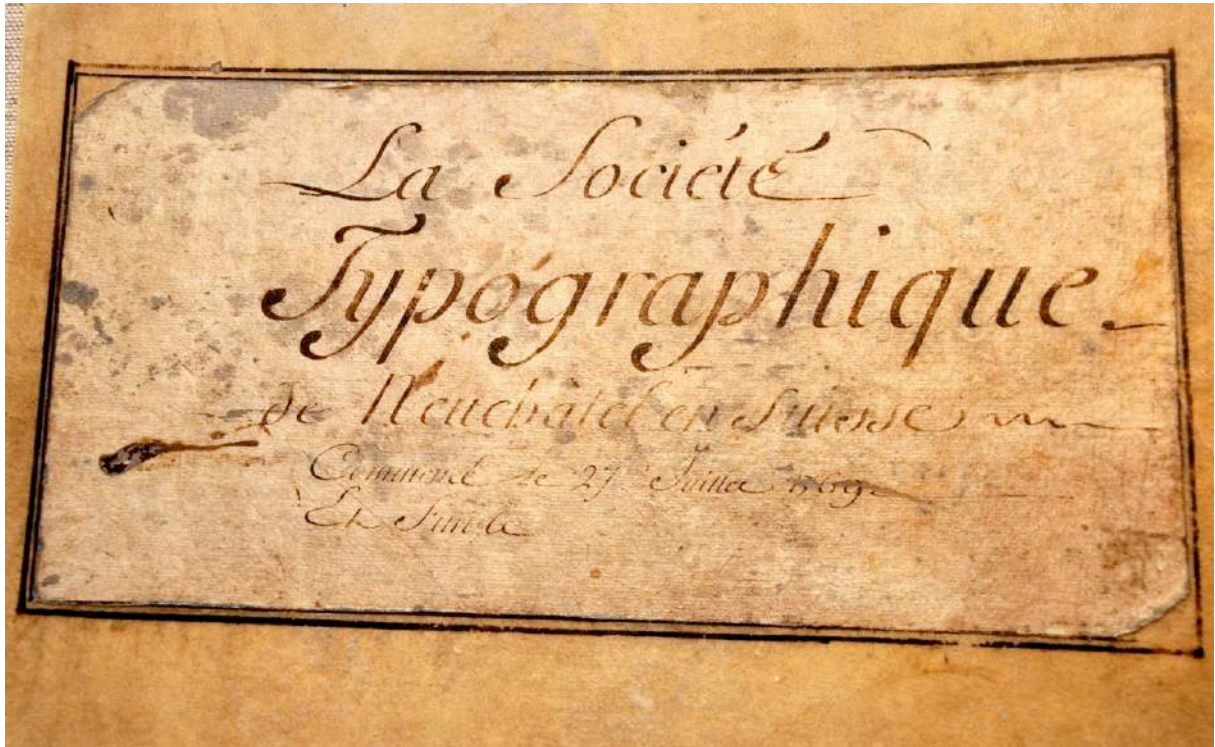 La Société
Typographique
de Neuchatel en Suisse
Commencé le 27e Juillet 1769